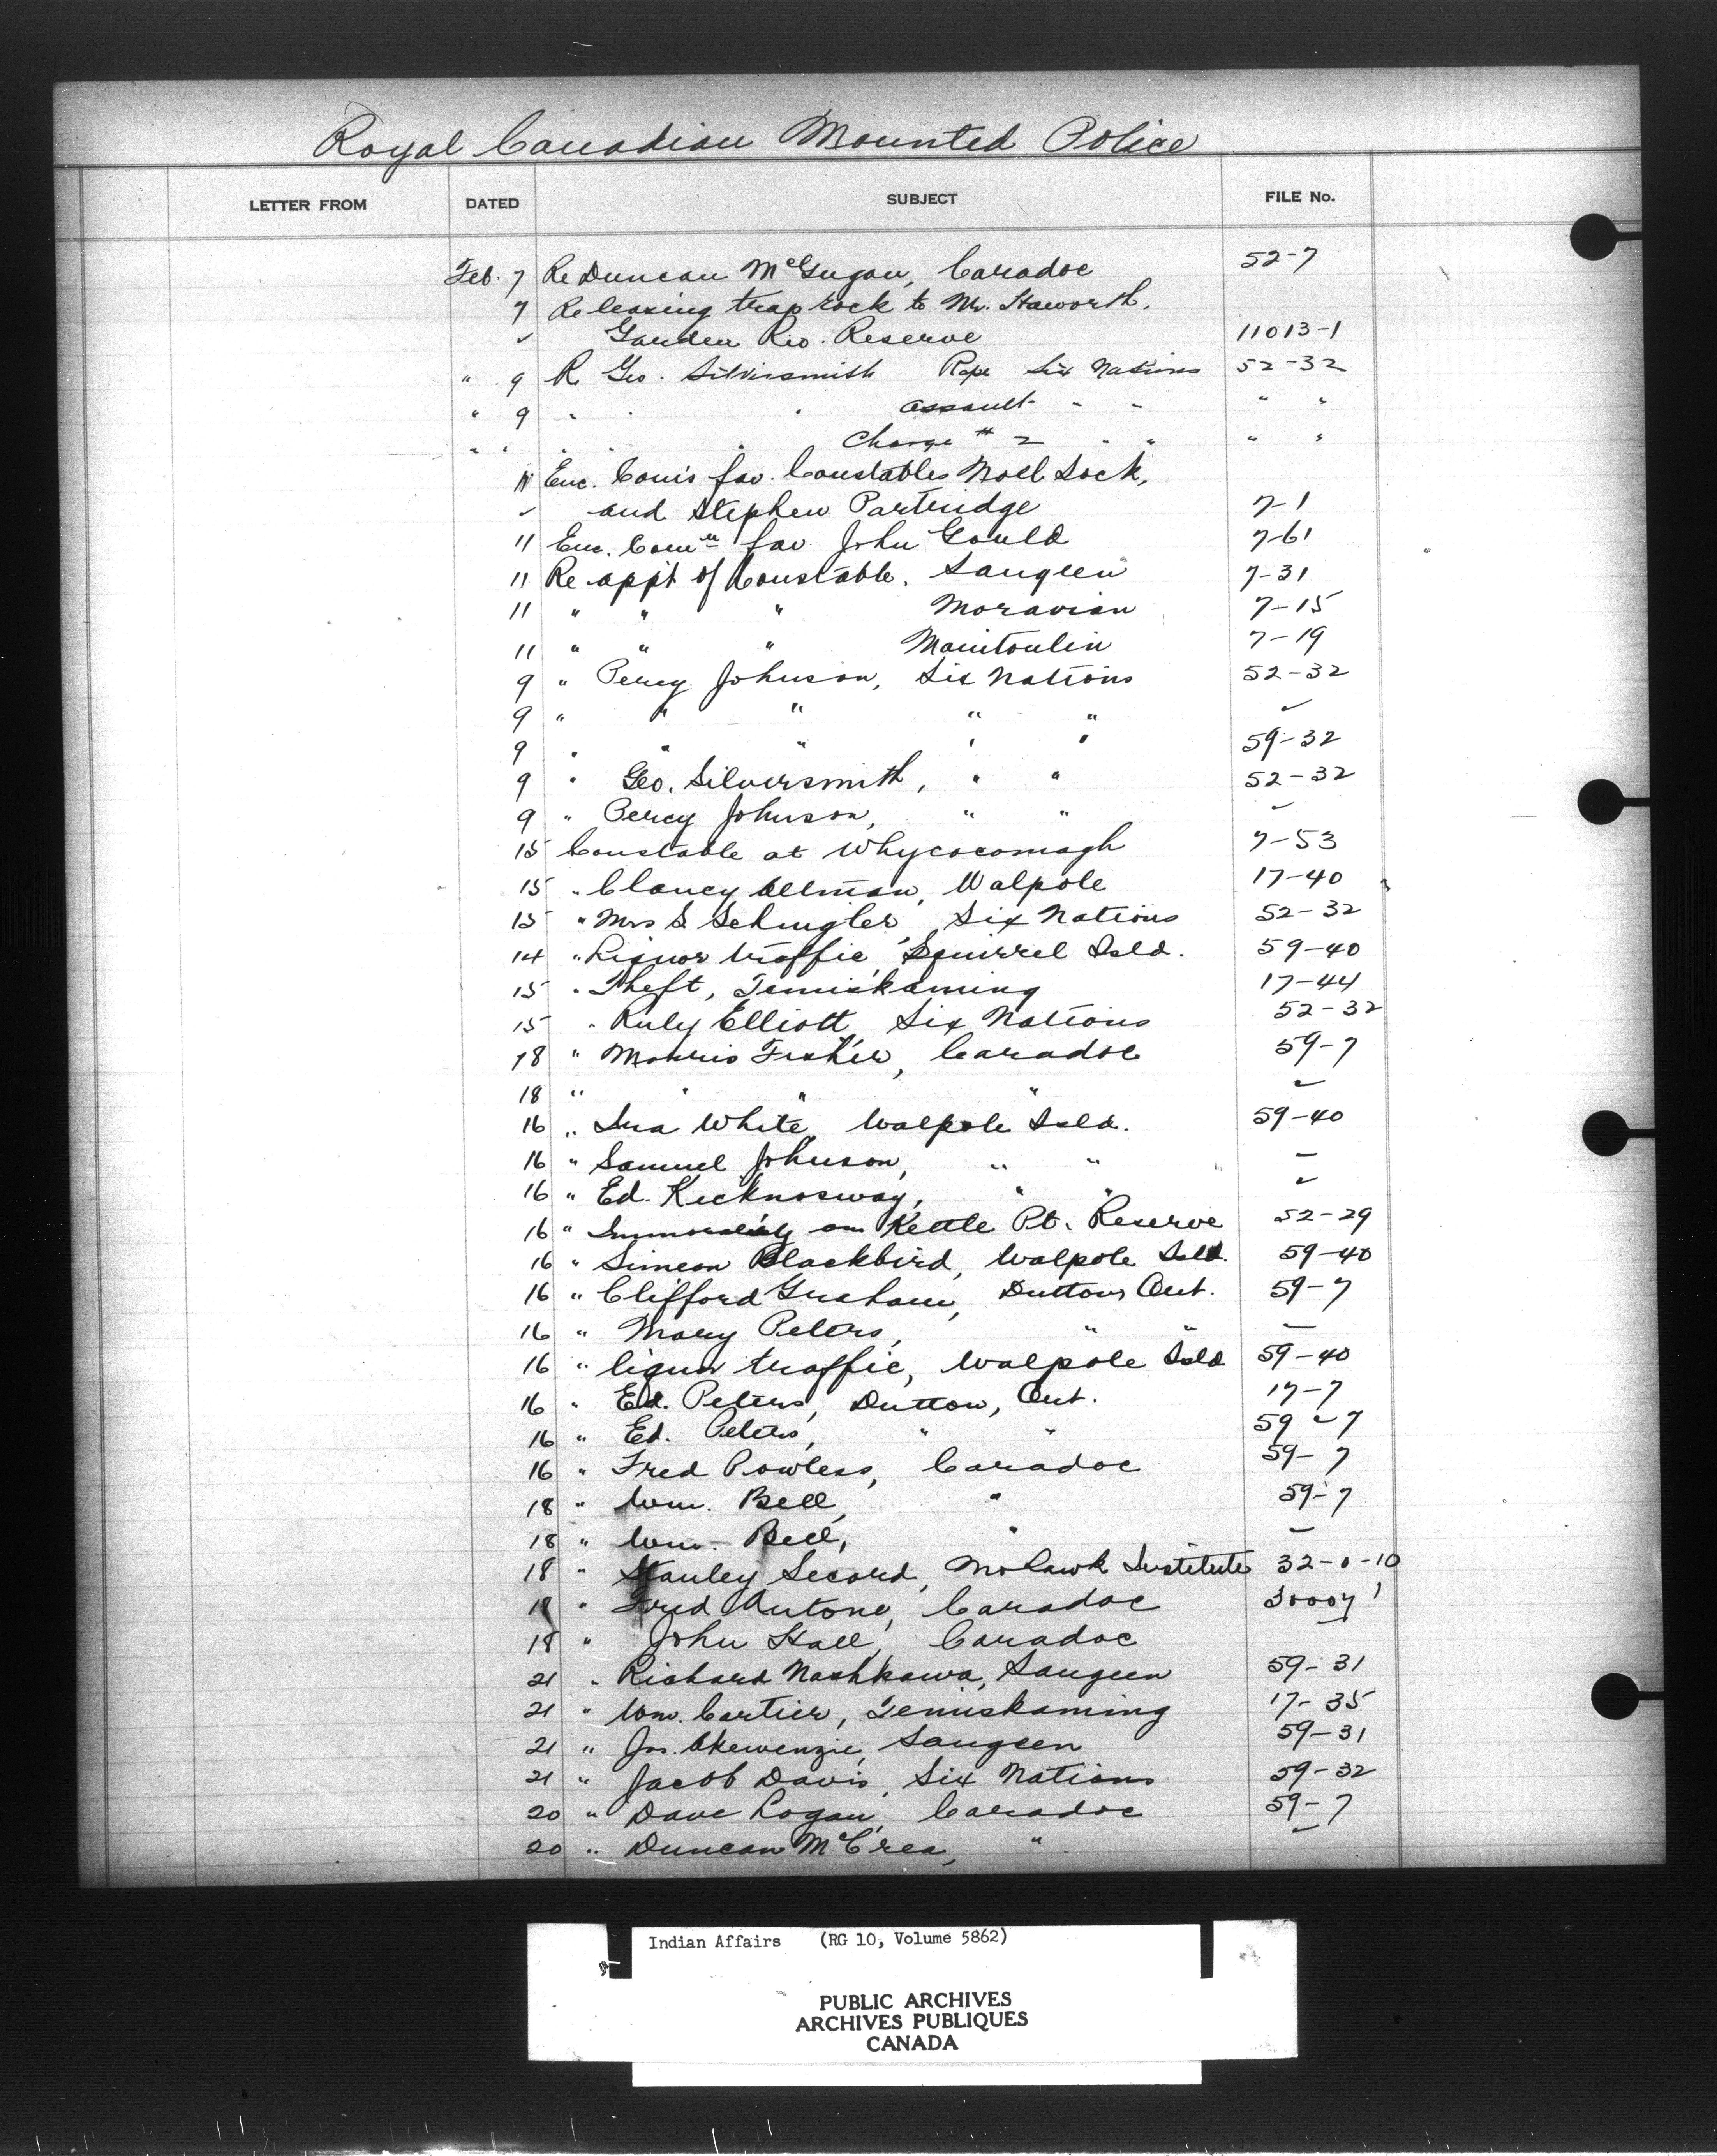 Royal Canadian Mounted Police
LETTER FROM DATED SUBJECT FILE No.
Feb. 7 Re Duncan McGugan, Caradoc 52-7
7 Re leasing trap rock to Mr. Haworth,
✓ Garden Riv. Reserve 11013-1
" 9 Re Geo. Silversmith Rape Six Nations 52-32
" 9 " " " assault " " " "
" " " " " Charge # 2 " " " "
11 Enc. Com's fav. Constables Noel Sock,
✓ and Stephen Partridge 7-1
11 Enc. Comn fav. John Gould 7-61
11 Re appt of Constable, Saugeen 7-31
11 " " " Moravian 7-15
11 " " " Manitoulin 7-19
9 " Percy Johnson, Six Nations 52-32
9 " " " " " ✓
9 " " " " " 59-32
9 " Geo. Silversmith, " " 52-32
9 " Percy Johnson, " " ✓
15 Constable at Whycocomagh 7-53
15 " Clancy Allman, Walpole 17-40
15 " Mrs S. Schingler, Six Nations 52-32
14 " Liquor traffic, Squirrel Isld. 59-40
15 " Theft, Temiskaming 17-44
15 " Ruly Elliott, Six Nations 52-32
18 " Morris Fisher, Caradoc 59-7
18 " " " " ✓
16 " Ira White, Walpole Isld. 59-40
16 " Samuel Johnson, " " –
16 " Ed. Kicknosway, " " ✓
16 " Immorality on Kettle Pt. Reserve 52-29
16 " Simeon Blackbird, Walpole Isld. 59-40
16 " Clifford Graham, Dutton, Ont. 59-7
16 " Mary Peters, " " –
16 " liquor traffic, Walpole Isld 59-40
16 " Ed. Peters, Dutton, Ont. 17-7
16 " Ed. Peters, " " 59-7
16 " Fred Powless, Caradoc 59-7
18 " Wm. Bell, " 59-7
18 " Wm. Bell, " –
18 " Stanley Secord, Mohawk Institute 32-0-10
18 " Fred Antone, Caradoc
18 " John Hall, Caradoc
21 " Richard Nashkawa, Saugeen 59-31
21 " Wm. Cartier, Temiskaming 17-35
21 " Jos. Akewenzie, Saugeen 59-31
21 " Jacob Davis, Six Nations 59-32
20 " Dave Logan, Caradoc 59-7
20 " Duncan McCrea, " ✓
Indian Affairs (RG 10, Volume 5862)
PUBLIC ARCHIVES
ARCHIVES PUBLIQUES
CANADA